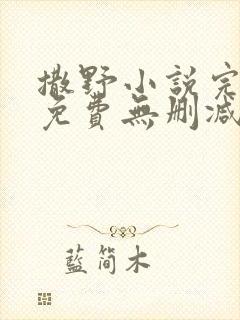 撒野小説完
免費無刪減
藍簡木